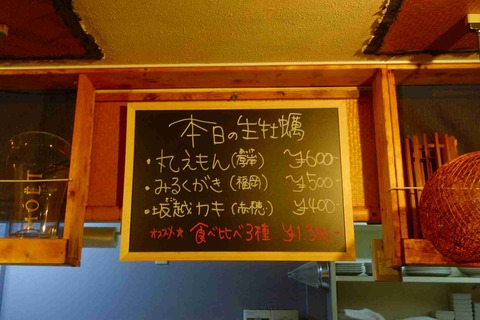 本日の生牡蠣
・丸えもん(厚岸) ¥600-
・みるくがき(福岡) ¥500-
・坂越カキ(赤穂) ¥400-
オススメ★ 食べ比べ3種 ¥1.3
MOËT